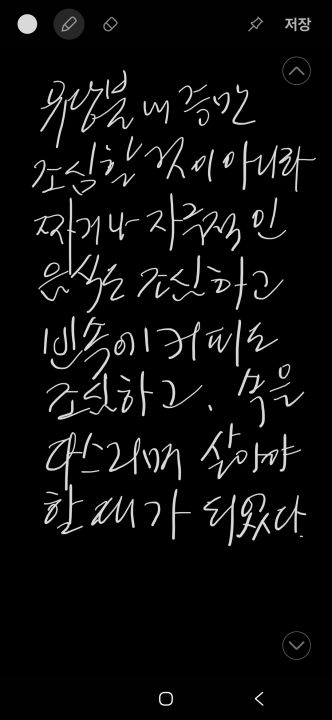 저장
유당불내증만
조심할 것이 아니라
짜거나 자극적인
음식도 조심하고
빈속에 커피도
조심하고, 속을
다스리며 살아야
할 때가 되었다.